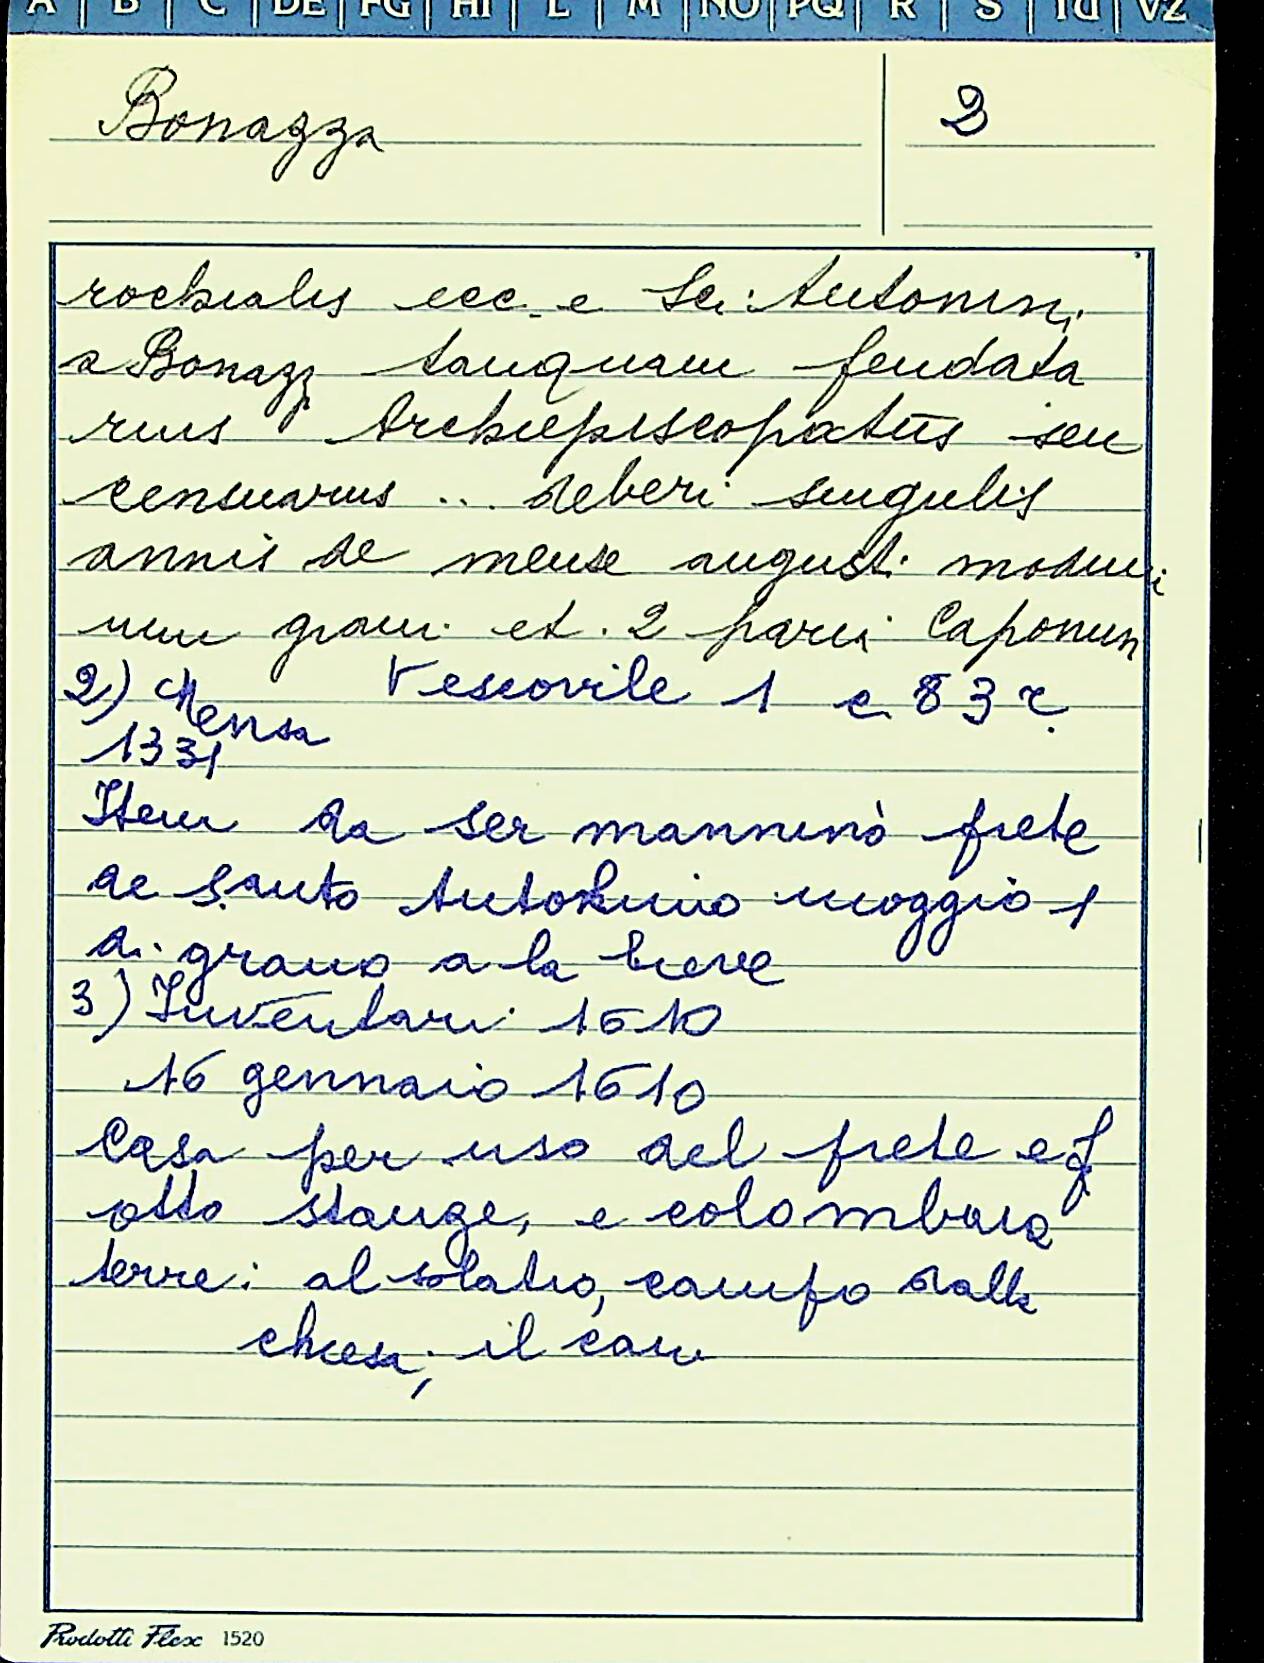 A | B | C | DE | FG | HI | L | M | NO | PQ | R | S | TU | VZ
Bonazza
2
rochialis ecc. e Sci. Antonini
a Bonazz tanquam feudata
rius Archiepiscopatus seu
censuarius .. deberi singulis
annis de mense augusti modium
num grani et. 2 paria Caponum
2) Mensa Vescovile 1 c. 83 r.
1331
Item da ser mannino prete
de Santo Antonino moggio 1
di grano a la breve
3) Inventari 1610
16 gennaio 1610
Casa per uso del prete e
otto stanze, e colombaia
terre: al solatio, campo dalla
chiesa, il cam
Prodotti Flex 1520